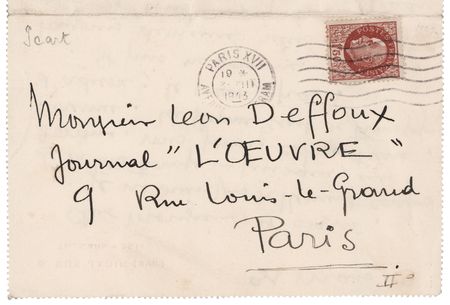 Icart
PARIS XVII
19
1943
POSTES
Monsieur Leon Deffoux
Journal "L'ŒUVRE"
9 Rue Louis-le-Grand
Paris
IIº